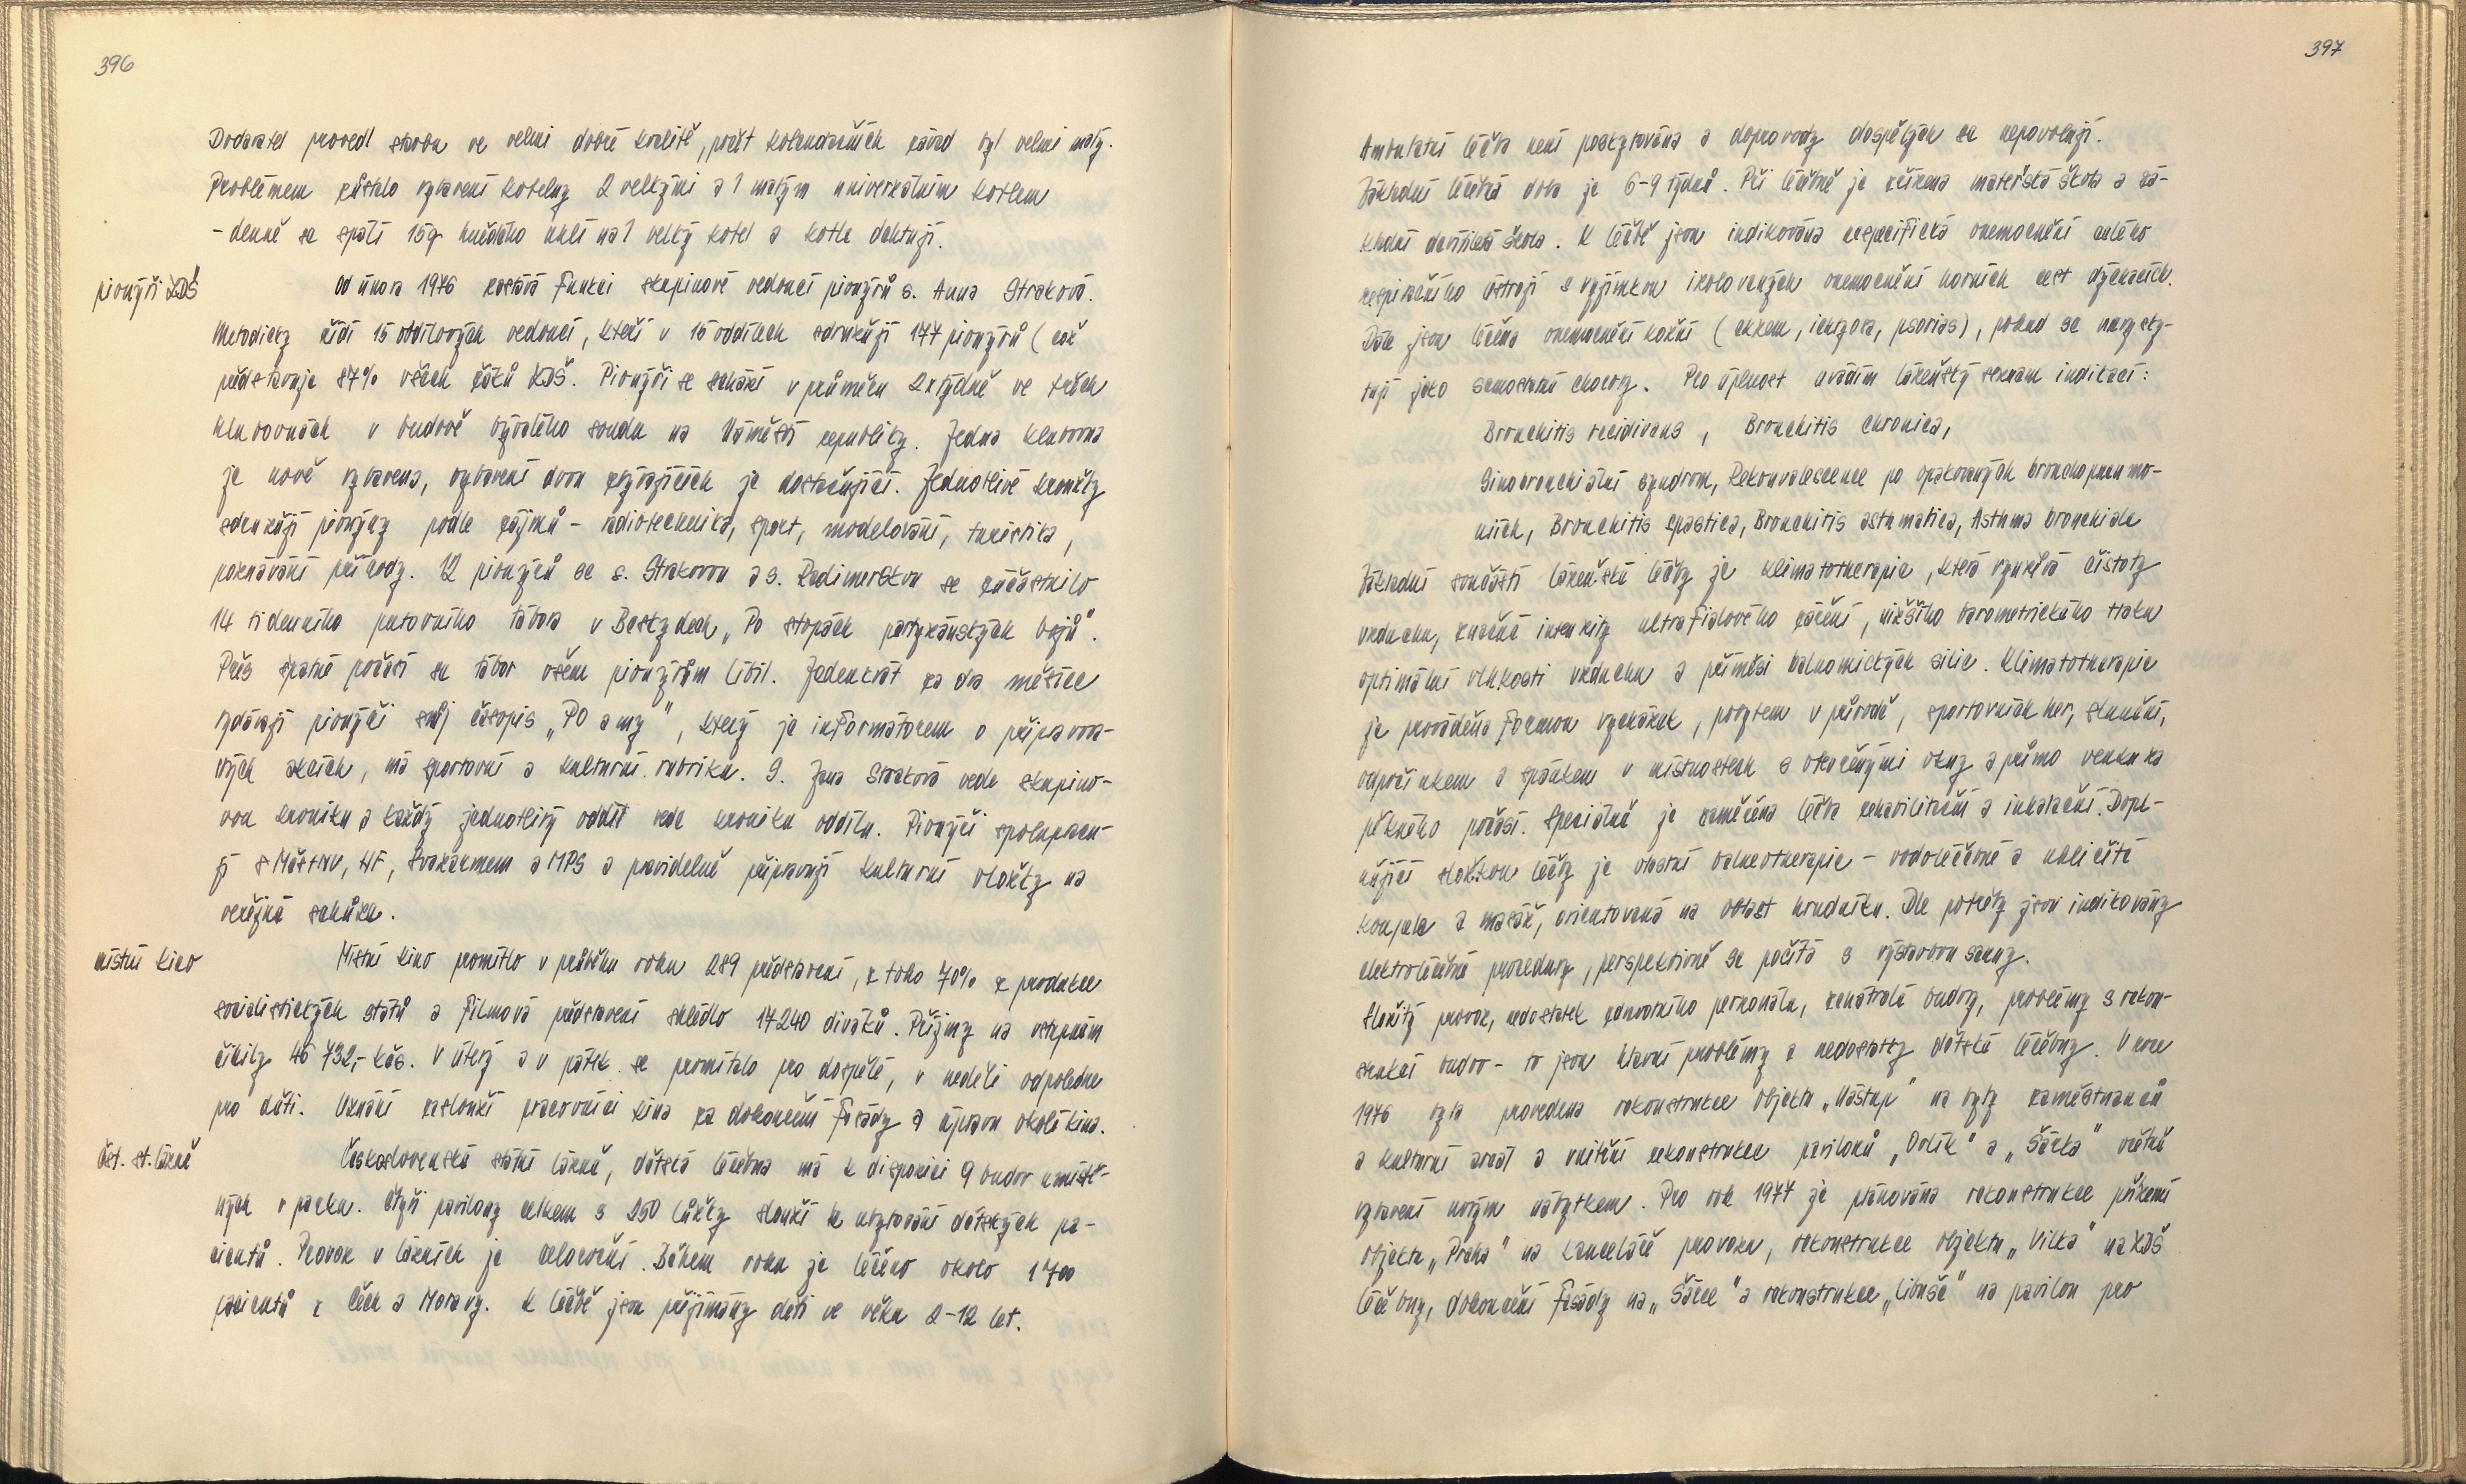 396
Dodavatel provedl stavbu ve velmi dobré kvalitě, počet kolaudačních závad byl velmi malý.
Problémem zůstalo vybavení kotelny 2 velkými a 1 malým univerzálním kotlem
- denně se spálí 15q hnědého uhlí na 1 velký kotel a kotle dehtují.
pionýři ZDŠ
Od února 1976 zastává funkci skupinové vedoucí pionýrů s. Anna Straková.
Metodicky řídí 15 oddílových vedoucí, kteří v 15 oddílech sdružují 177 pionýrů (což
představuje 87% všech žáků ZDŠ. Pionýři se schází v průměru 2x týdně ve třech
klubovnách v budově bývalého soudu na Náměstí republiky. Jedna klubovna
je nově vybavena, vybavení dvou zbývajících je dostačující. Jednotlivé kroužky
sdružují pionýry podle zájmů - radiotechnika, sport, modelování, turistika,
poznávání přírody. 12 pionýrů se s. Strakovou a s. Radimerskou se zúčastnilo
14 tidenního putovního tábora v Beskydech „Po stopách partyzánských bojů".
Přes špatné počasí se tábor všem pionýrům líbil. Jedenkrát za dva měsíce
vydávají pionýři svůj časopis „PO a my", který je informátorem o připravova-
ných akcích, má sportovní a kulturní rubriku. S. Jana Straková vede skupino-
vou kroniku a každý jednotlivý oddíl vede kroniku oddílu. Pionýři spolupracu-
jí s MěstNV, NF, Svazarmem a MPS a pravidelně připravují kulturní vložky na
veřejné schůze.
místní kino
Místní kino promítlo v průběhu roku 289 představení, z toho 70% z produkce
socialistických států a filmová představení shlédlo 17240 diváků. Příjmy na vstupném
činily 46 732,- Kčs. V úterý a v pátek se promítalo pro dospělé, v neděli odpoledne
pro děti. Uznání zaslouží pracovníci kina za dokončení fasády a úpravu okolí kina.
čst. st. lázně
Československé státní lázně, dětská léčebna má k dispozici 9 budov umístě-
ných v parku. Čtyři pavilony celkem s 250 lůžky slouží k ubytování dětských pa-
cientů. Provoz v lázních je celoroční. Během roku je léčeno okolo 1700
pacientů z Čech a Moravy. K léčbě jsou přijímány děti ve věku 2-12 let.
397
Ambulatní léčba není poskytována a doprovody dospělých se nepovolují.
Základní léčebná doba je 6-9 týdnů. Při léčebně je zřízena mateřská škola a zá-
kladní devítiletá škola. K léčbě jsou indikována nespecifická onemocnění celého
respiračního ústrojí s vyjímkou izolovaných onemocnění horních cest dýchacích.
Dále jsou léčena onemocnění kožní (ekzem, ichtyosa, psorias), pokud se nevysky-
tují jako samostatné choroby. Pro úplnost uvádím lázeňský seznam indikací:
Bronchitis recidivans, Bronchitis chronica,
Sinobronchiální syndrom, Rekonvalescence po opakovaných bronchopneumo-
niích, Bronchitis spastica, Bronchitis asthmatica, Asthma bronchiale
Základní součástí lázeňské léčby je klimatotherapie, která využívá čistoty
vzduchu, značné intenzity ultrafialového záření, nižšího barometrického tlaku
optimální vlhkosti vzduchu a příměsi balnomických silic. Klimatotherapie
je prováděna formou vycházek, pobytem v přírodě, sportovních her, slunění,
odpočinkem a spánkem v místnostech s otevřenými okny a přímo venku za
pěkného počasí. Speciálně je zaměřena léčba rehabilitační a inhalační. Dopl-
ňující složkou léčby je vlastní balneotherapie - vodoléčebné a uhličité
koupele a masáž, orientovaná na oblast hrudníku. Dle potřeby jsou indikovány
elektroléčebné procedury, perspektivně se počítá s výstavbou sauny.
Složitý provoz, nedostatek zdravotního personálu, zchátralé budovy, problémy s rekon-
strukcí budov - to jsou hlavní problémy a nedostatky dětské léčebny. V roce
1976 byla provedena rekonstrukce objektu „Nástup" na byty zaměstnanců
a kulturní areál a vnitřní rekonstrukce pavilonů „Orlík" a „Šárka" včetně
vybavení novým nábytkem. Pro rok 1977 je plánována rekonstrukce přízemí
objektu „Praha" na kanceláře provozu, rekonstrukce objektu „Vilka" na ZDŠ
léčebny, dokončení fasády na „Šárce" a rekonstrukce „Libuše" na pavilon pro